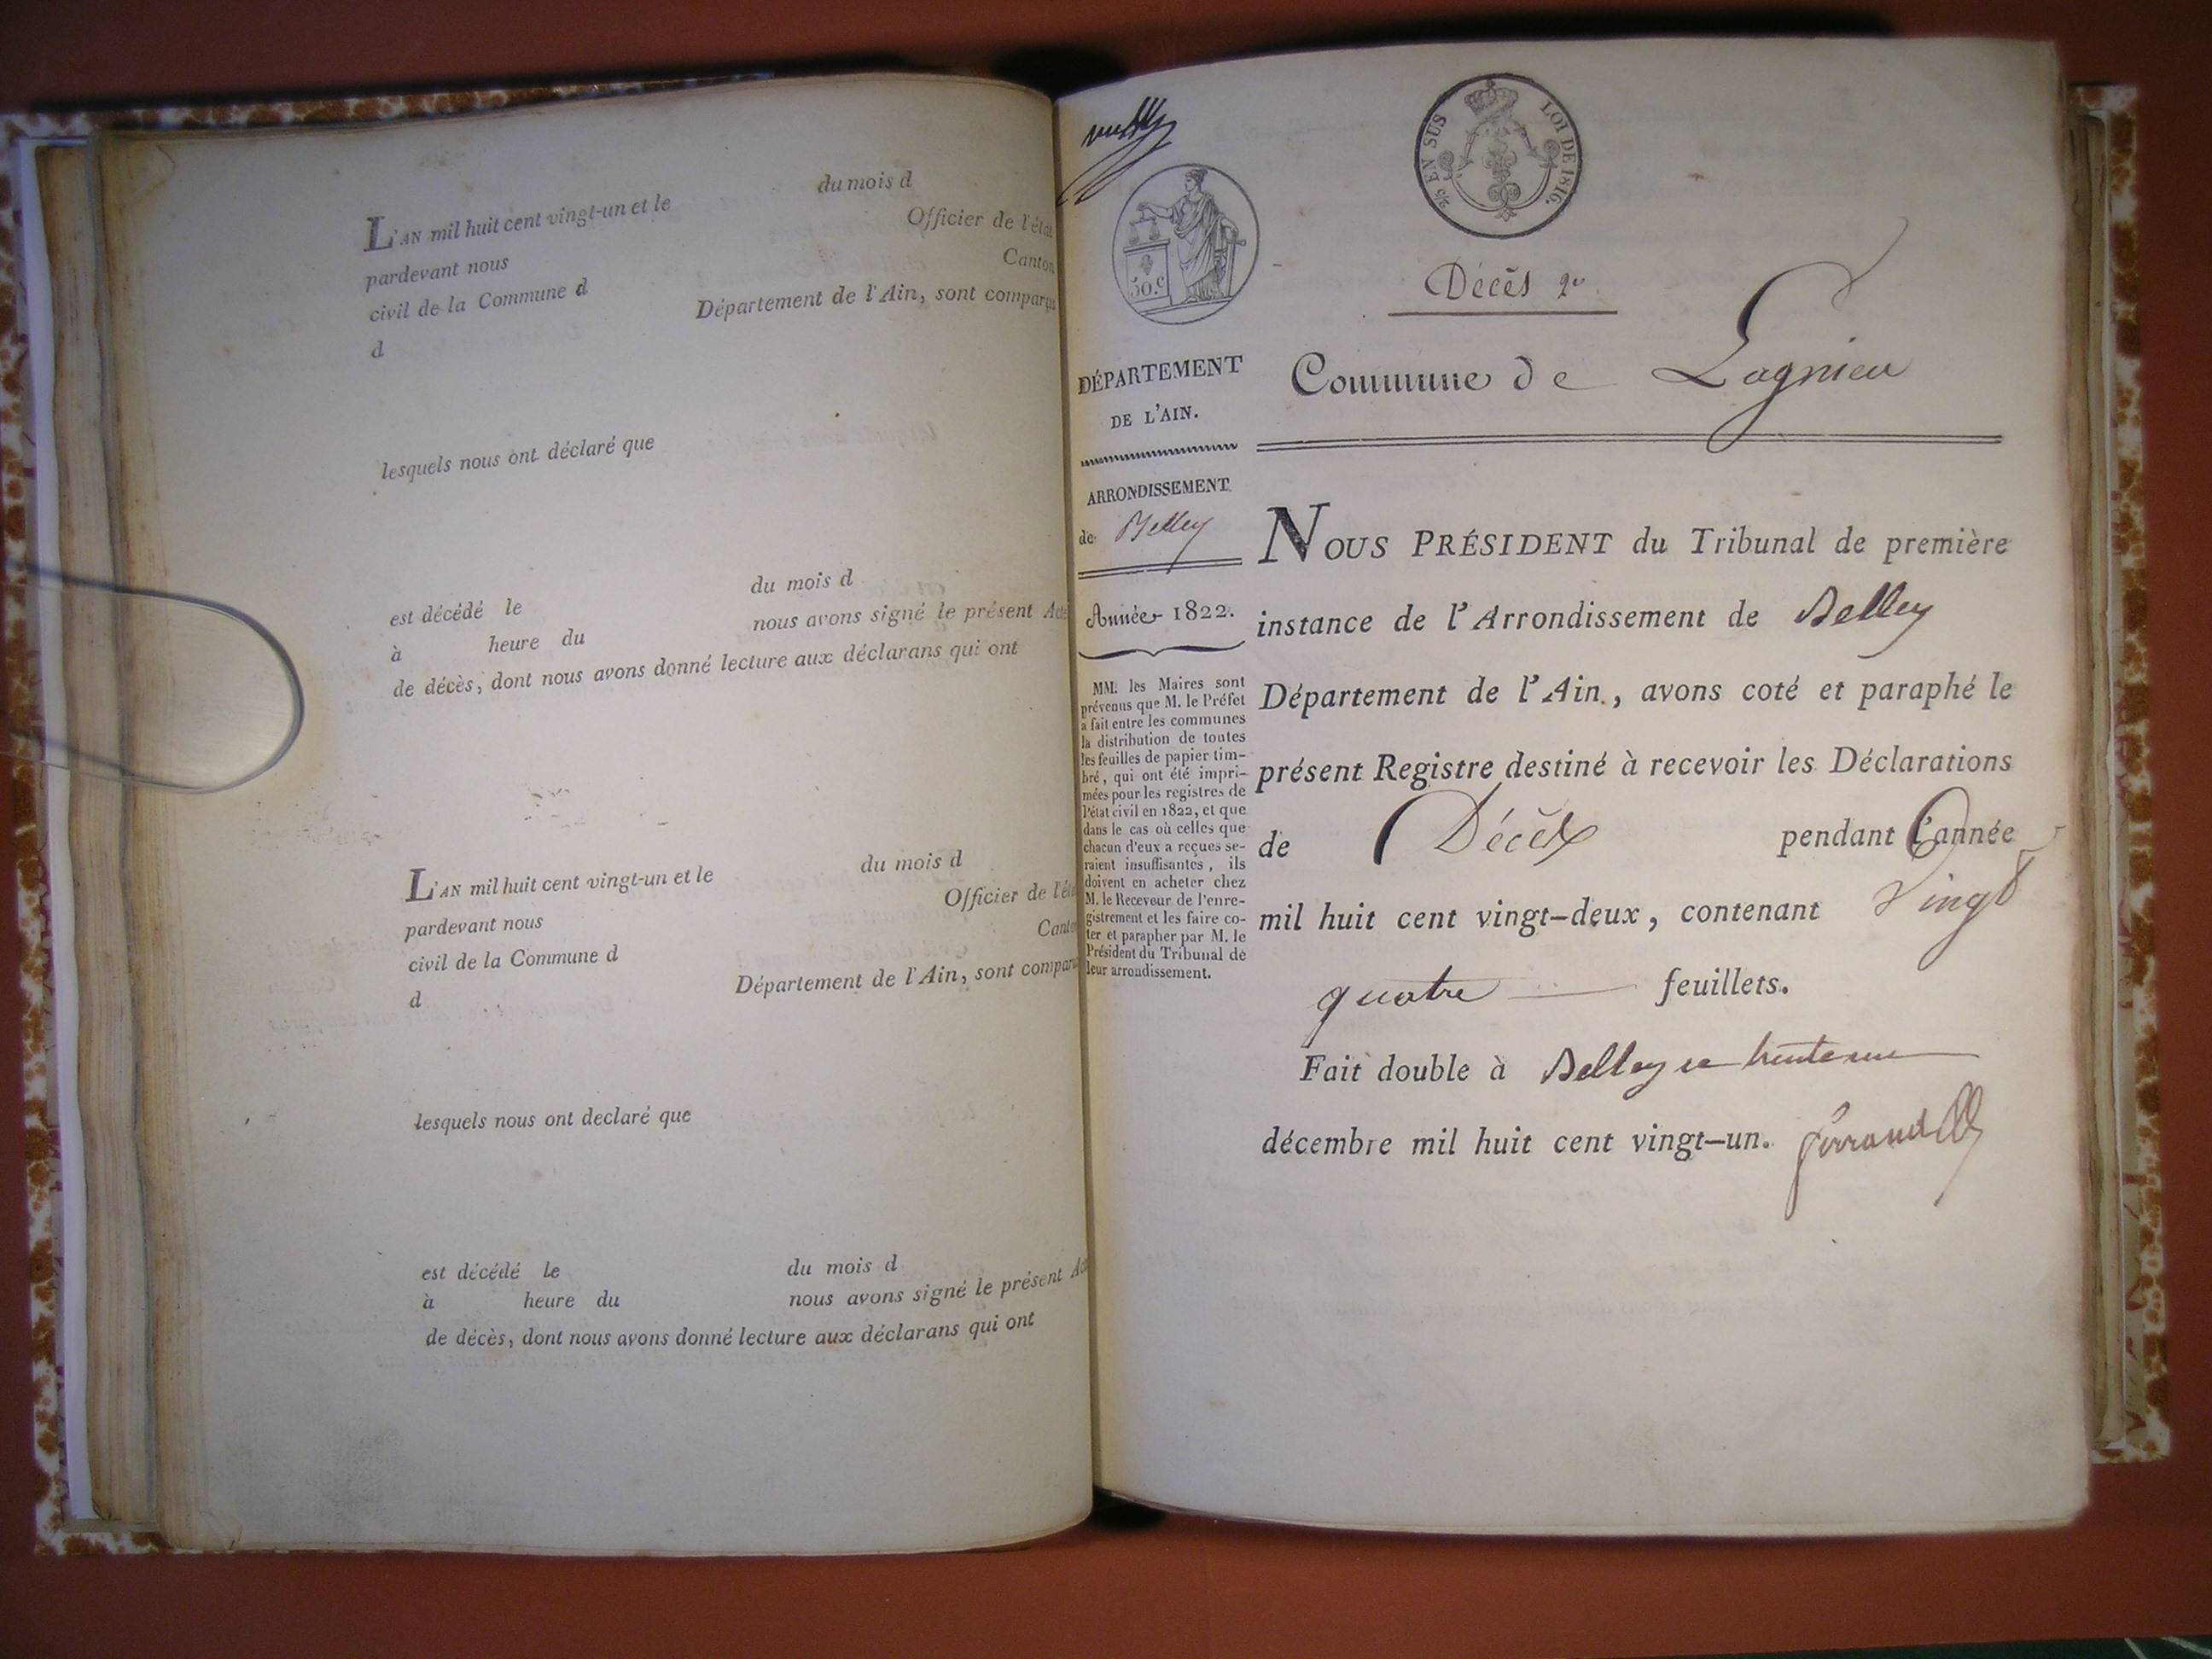 du mois d
L'AN mil huit cent vingt-un et le
Officier de l'état
pardevant nous
Canton
civil de la Commune d
Département de l'Ain, sont comparus
d
lesquels nous ont déclaré que
est décédé le du mois d
à heure du nous avons signé le présent Acte
de décès, dont nous avons donné lecture aux déclarans qui ont
L'AN mil huit cent vingt-un et le du mois d
pardevant nous Officier de l'éta
civil de la Commune d Canto
d Département de l'Ain, sont comparu
lesquels nous ont declaré que
est décédé le du mois d
à heure du nous avons signé le présent Ac
de décès, dont nous avons donné lecture aux déclarans qui ont
EN SUS
LOI DE 1816.
50.c
Décès
DÉPARTEMENT
DE L'AIN.
ARRONDISSEMENT
de Belley
Année 1822.
MM. les Maires sont
prévenus que M. le Préfet
a fait entre les communes
la distribution de toutes
les feuilles de papier tim-
bré, qui ont été impri-
mées pour les registres de
l'état civil en 1822, et que
dans le cas où celles que
chacun d'eux a reçues se-
raient insuffisantes, ils
doivent en acheter chez
M. le Receveur de l'enre-
gistrement et les faire co-
ter et parapher par M. le
Président du Tribunal de
leur arrondissement.
Commune de Lagnieu
NOUS PRÉSIDENT du Tribunal de première
instance de l'Arrondissement de Belley
Département de l'Ain, avons coté et paraphé le
présent Registre destiné à recevoir les Déclarations
de Décès pendant l'année
mil huit cent vingt-deux, contenant Vingt
quatre feuillets.
Fait double à Belley ce trente un
décembre mil huit cent vingt-un.